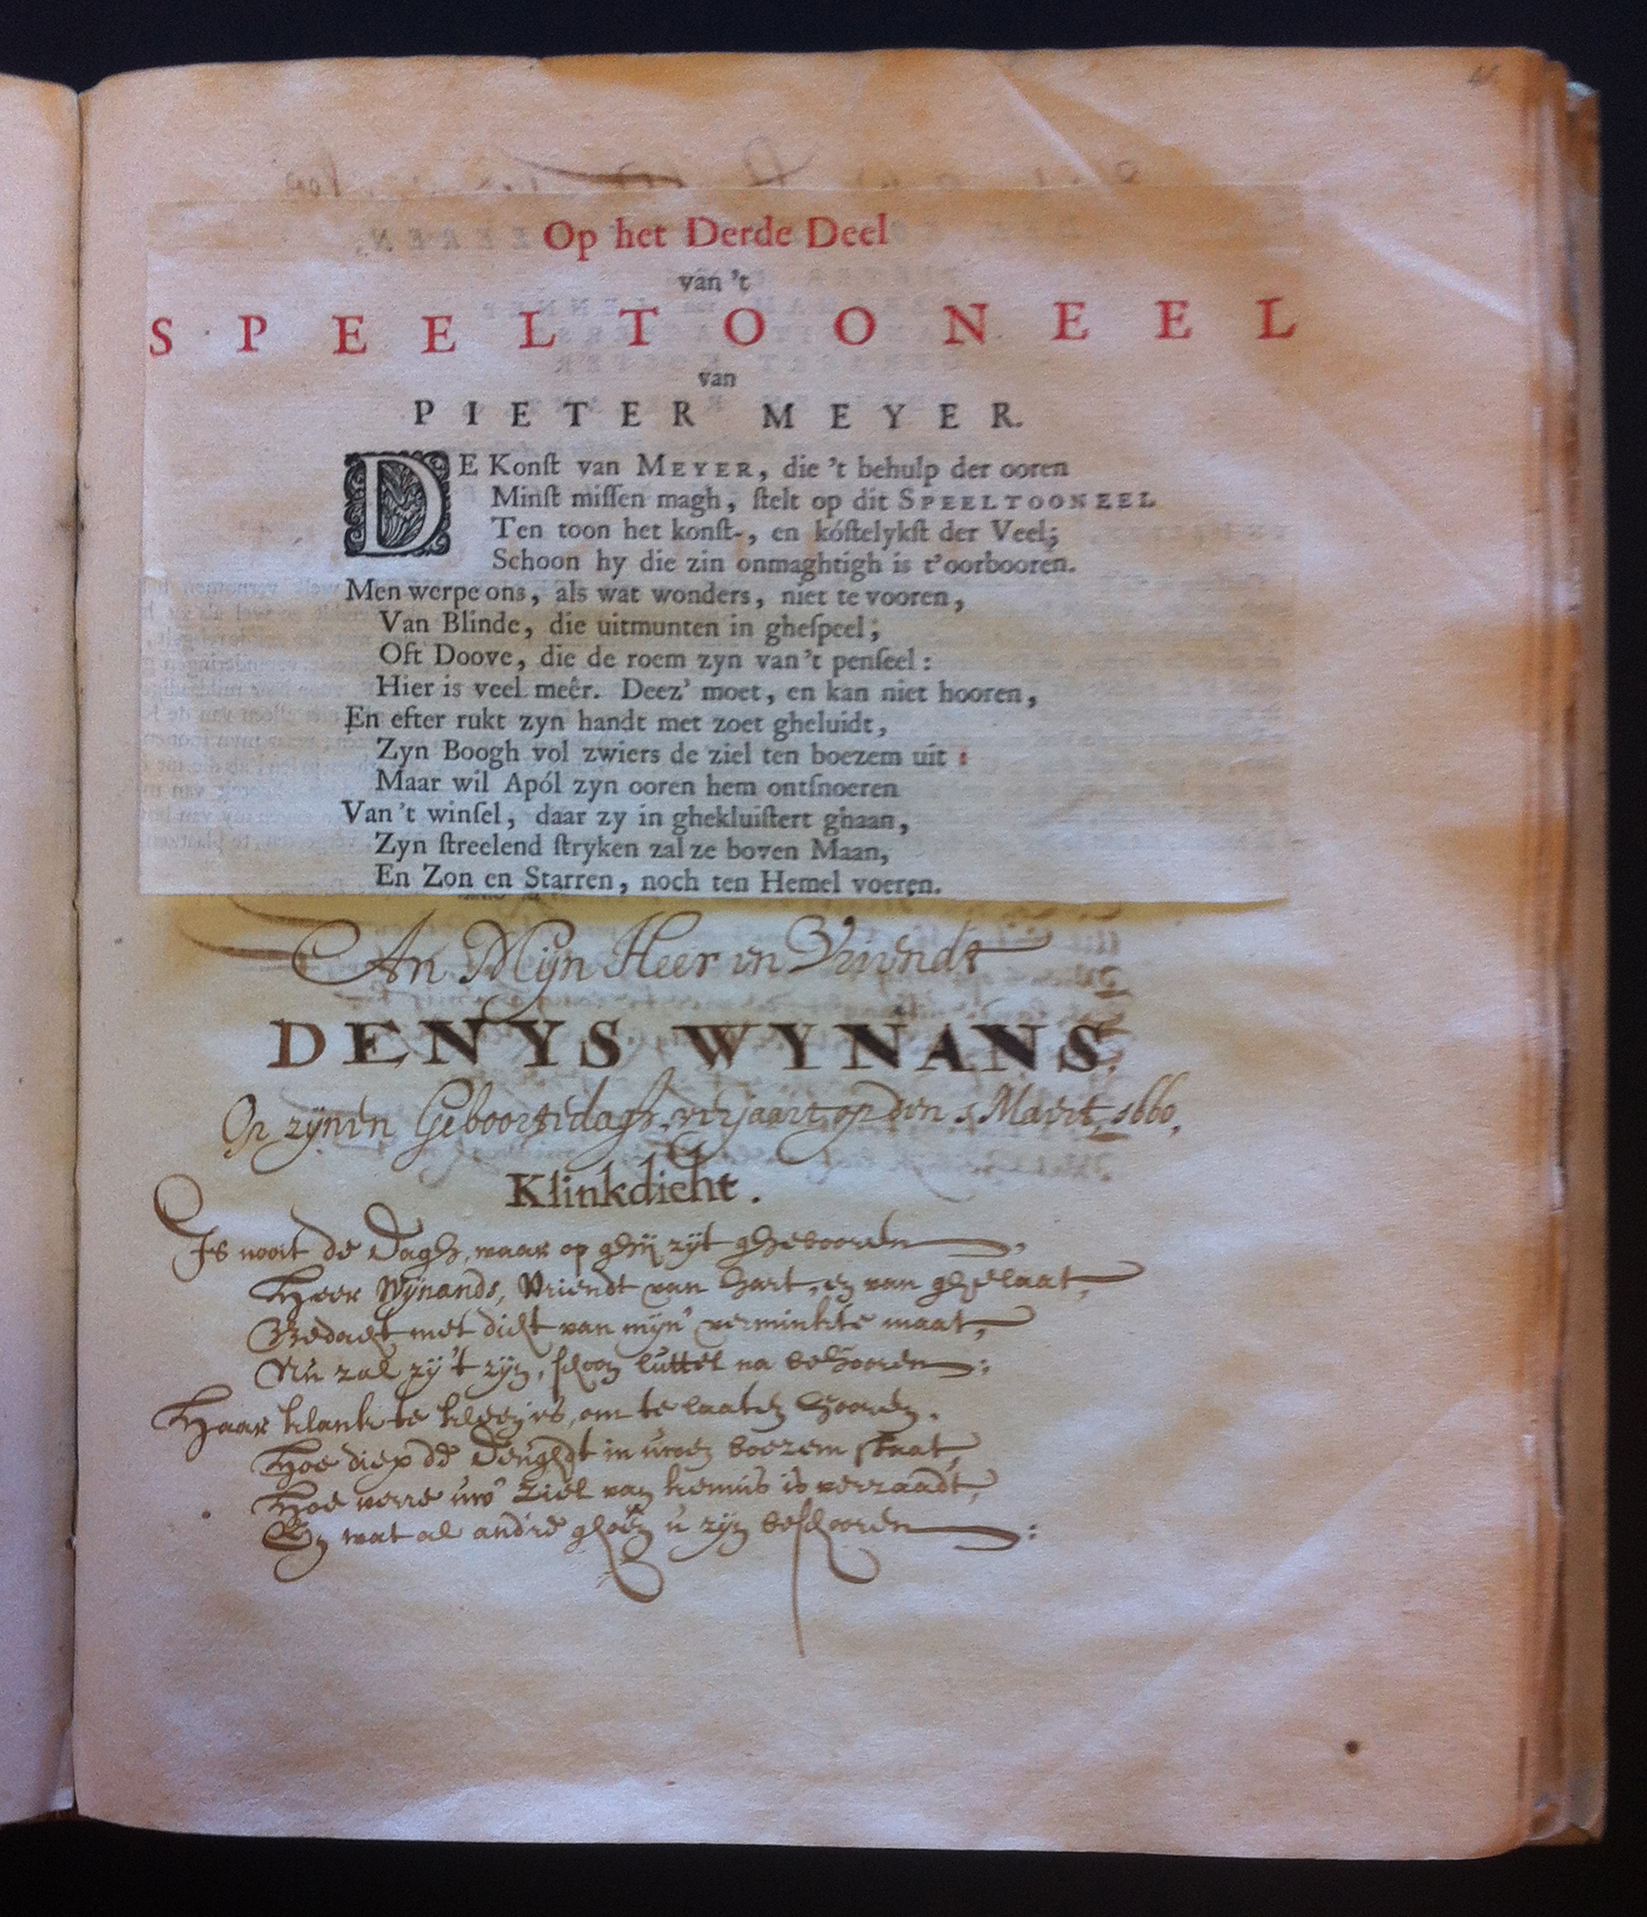 Op het Derde Deel
van 't
SPEELTOONEEL
van
PIETER MEYER.
DE Konſt van MEYER, die 't behulp der ooren
Minſt miſſen magh, ſtelt op dit SPEELTOONEEL
Ten toon het konſt-, en kóſtelykſt der Veel;
Schoon hy die zin onmaghtigh is t'oorbooren.
Men werpe ons, als wat wonders, niet te vooren,
Van Blinde, die uitmunten in gheſpeel;
Oft Doove, die de roem zyn van 't penſeel:
Hier is veel meêr. Deez' moet, en kan niet hooren,
En efter rukt zyn handt met zoet gheluidt,
Zyn Boogh vol zwiers de ziel ten boezem uit:
Maar wil Apól zyn ooren hem ontſnoeren
Van 't winſel, daar zy in ghekluiſtert ghaan,
Zyn ſtreelend ſtryken zal ze boven Maan,
En Zon en Starren, noch ten Hemel voeren.
An Mijn Heer en Vriendt
DENYS WYNANS.
Op zijnen Geboortedagh, verjaart op den 1 Maert, 1660.
Klinkdicht.
Is nooit de Dagh, waar op ghij zijt ghebooren,
Heer Wijnands, Vriendt van hart, en van ghelaat,
Bedacht met dicht van mijn' verminkte maat,
Nu zal zy 't zijn, schoon luttel na behooren:
Haar klank te kleen is, om te laaten hooren,
Hoe diep de Deughdt in uwen boezem staat,
Hoe verre uw' Ziel van kennis is verzaadt,
En wat al andre ghoên u zijn beschooren: